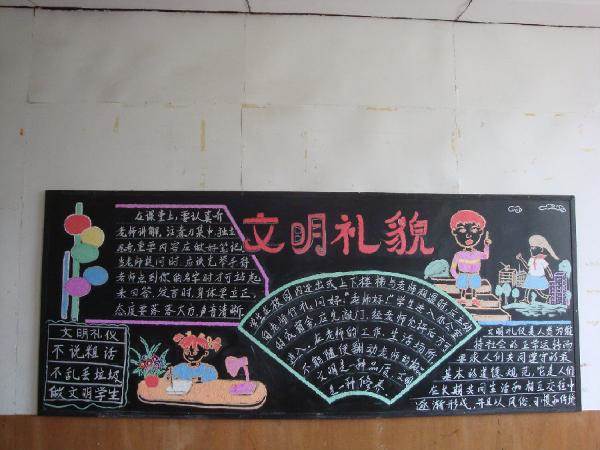 文明礼貌
在课堂上，要认真听
老师讲解，注意力集中，独立
思考，重要内容应做好笔记。
当老师提问时，应该先举手待
老师点到你的名字时才可站起
来回答，发言时，身体要立正，
态度要落落大方，声音清晰
文明礼仪
不说粗话
不乱丢垃圾
做文明学生
学生在校园内进出或上下楼梯与老师相遇时，应主动
向老师行礼问好“老师好”学生进入办公室
时，先喊 应先敲门，经老师允许后方可
进入，在老师的工作、生活场所
不能随便翻动老师的物品
文明是一种品质，文明
是一种修养
文明礼仪是人类为维
持社会的正常运转而
要求人们共同遵守的最
基本的道德规范，它是人们
在长期共同生活和相互交往中
逐渐形成，并且以风俗、习惯和传统